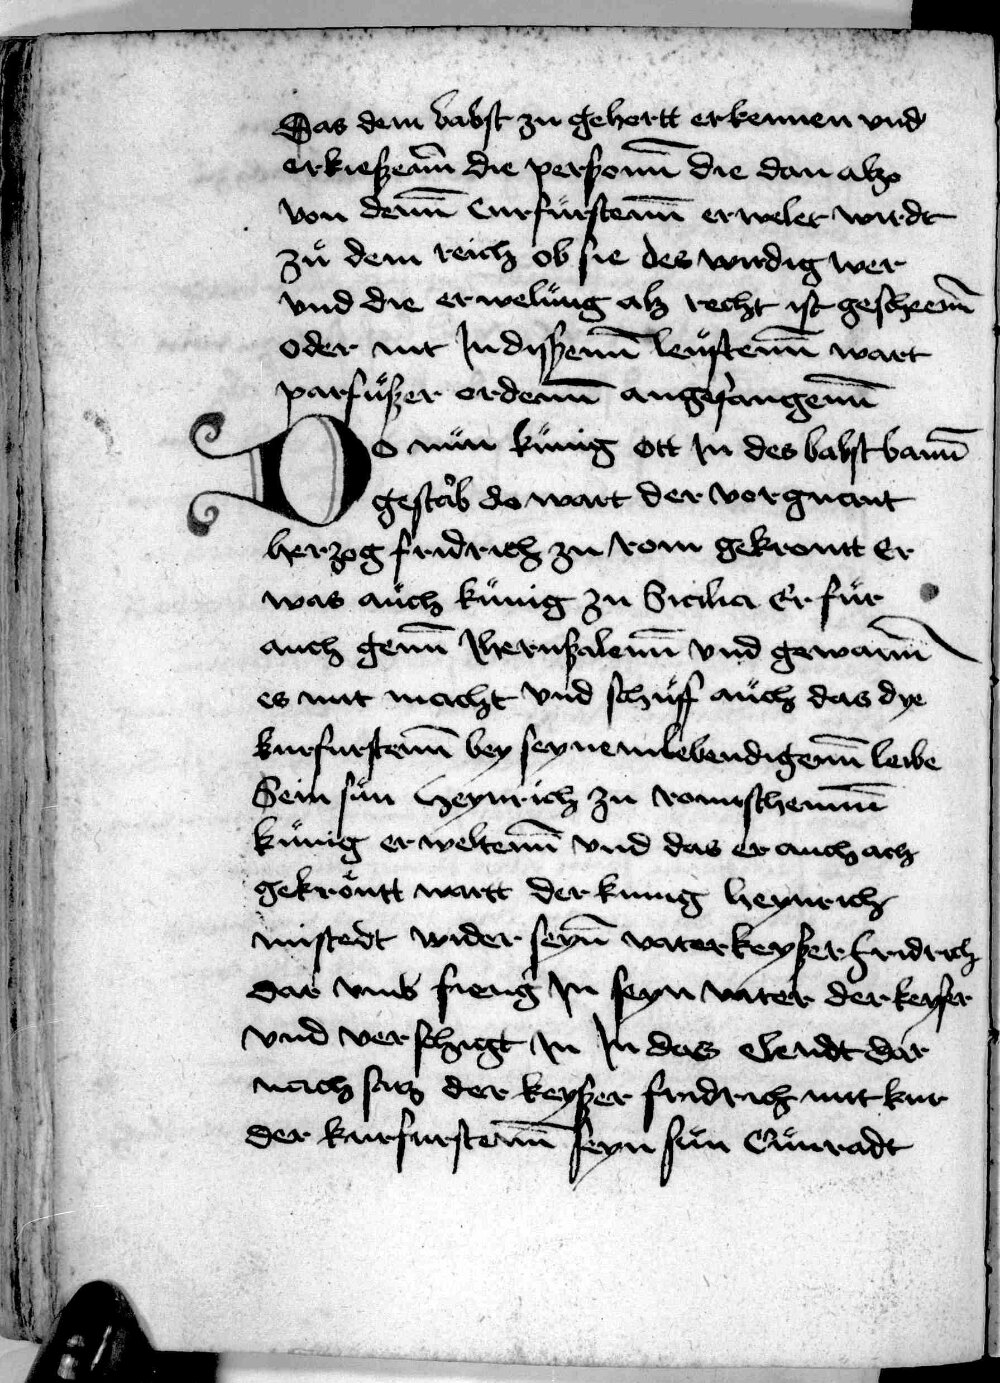 Das dem babst zu gehortt erkennen vnd
erkießenn die perßonn die dan alßo
von denn Curfürstenn erwelet wirdt
zů dem reich ob sie des wirdig wer
vnd die erwelüng alß recht ist gescheenn
oder nit In dißenn leüftenn wart
parfüßer ordenn angefangenn
Do nün künig ott In des babst bann
gestarb do wart der vorgnant
herzog fridrich zu rom gekrontt Er
was aüch künig zu Sicilia Er für
auch genn Iherußalenn vnd gewann
es mit macht vnd schüff aüch das dye
kurfurstenn bey seynem lebendigenn leibe
Sein sün Heynrich zu romischennn
künig erweltenn vnd das er auch ach
gekröntt wartt der kunig heynrich
mistedt wider seyn vater keyßer fridrich
dar vmb fieng In seyn vater der keyser
vnd verschigt In In das elendt dar
nach satz der keyßer fridrich mit kur
der kurfurstenn seyn sün Cünradt